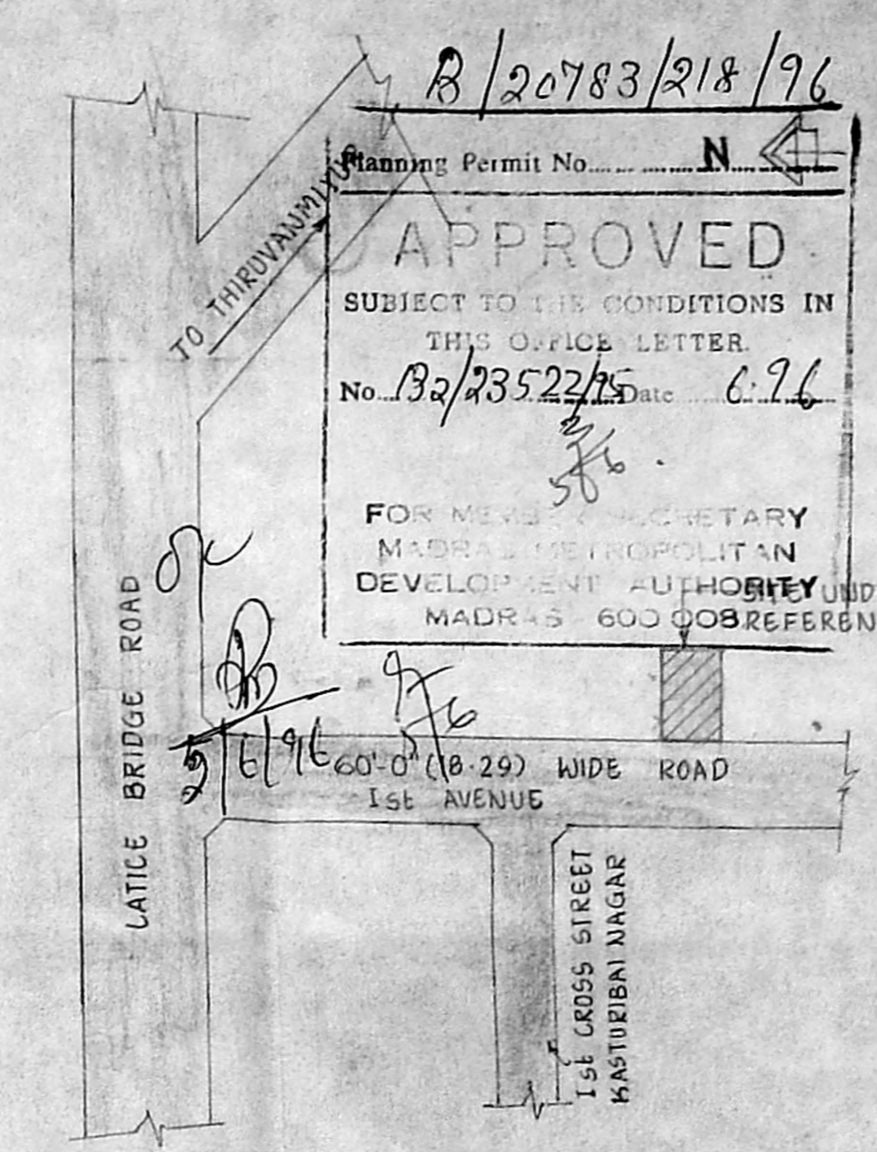 B/20783/218/96
Planning Permit No..... ............
N
APPROVED
SUBJECT TO THE CONDITIONS IN
THIS OFFICE LETTER
No...B2/23522/95 Date .....6.96
FOR MEMBER SECRETARY
MADRAS METROPOLITAN
DEVELOPMENT AUTHORITY
MADRAS 600 008
SITE UND
REFEREN
TO THIRUVANMIYUR
LATICE BRIDGE ROAD
5/6/96
60'-0" (18.29) WIDE ROAD
Ist AVENUE
Ist CROSS STREET
KASTURIBAI NAGAR